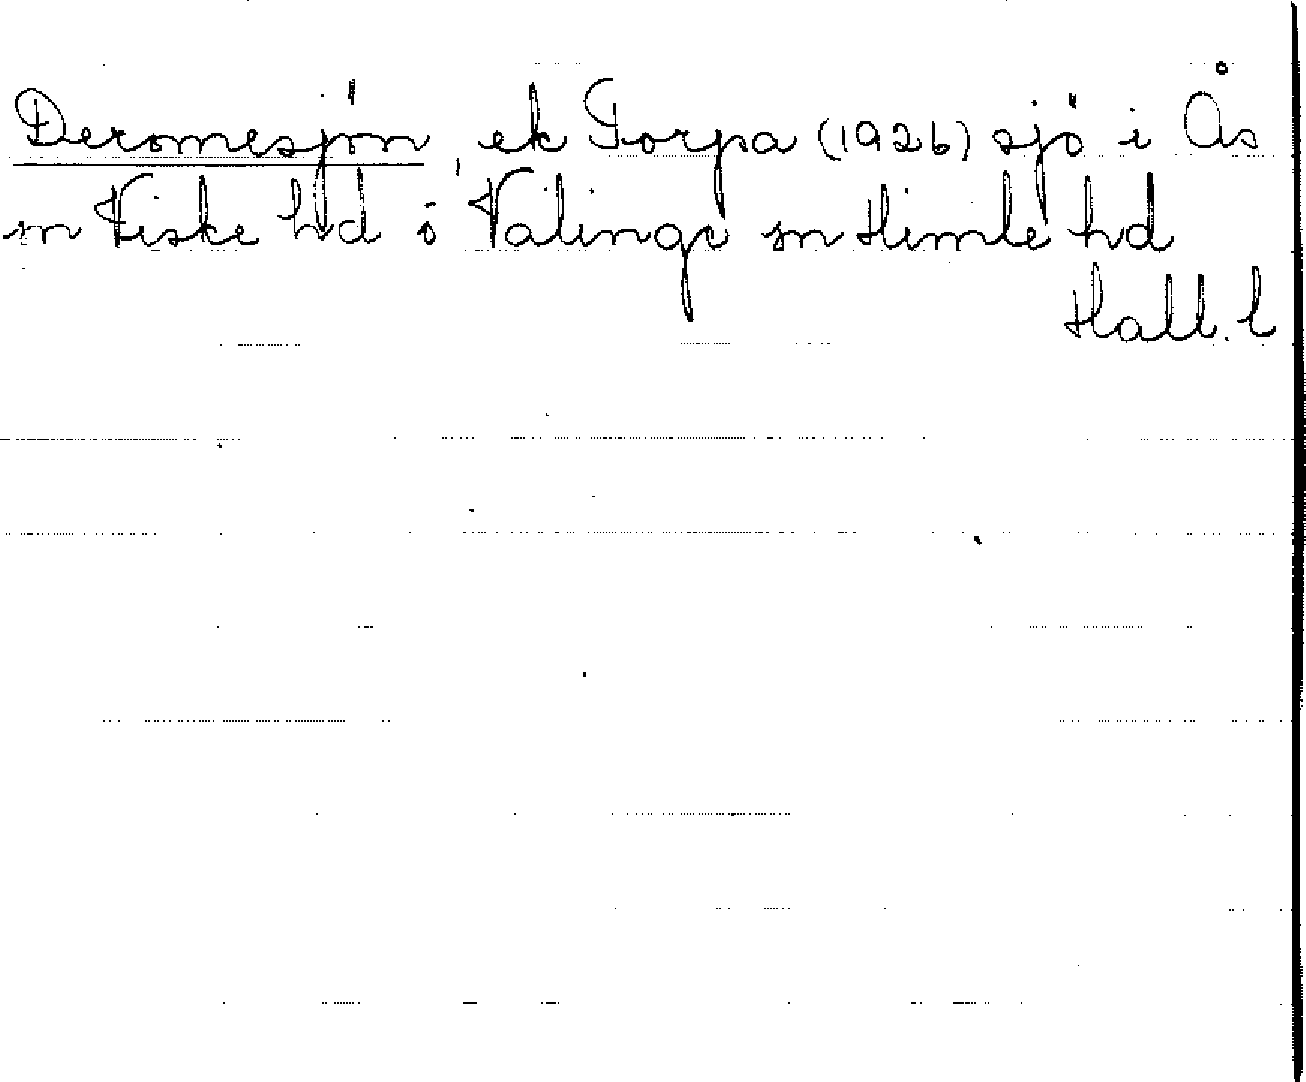 Deromesjön, ek Torpa (1926) sjö i Ås
sn Viske hd ö Valinge sn Himle hd
Hall. l